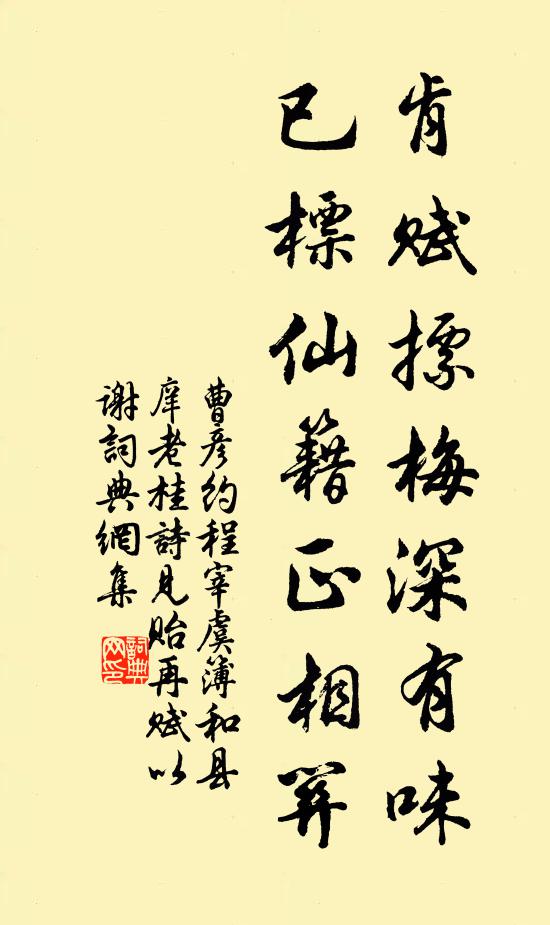 肯赋摽梅深有味
已標仙籍正相笄
曹彦约程宰虞簿和县
庠老桂詩見貽再赋以
谢詞典網集
詞典
网印